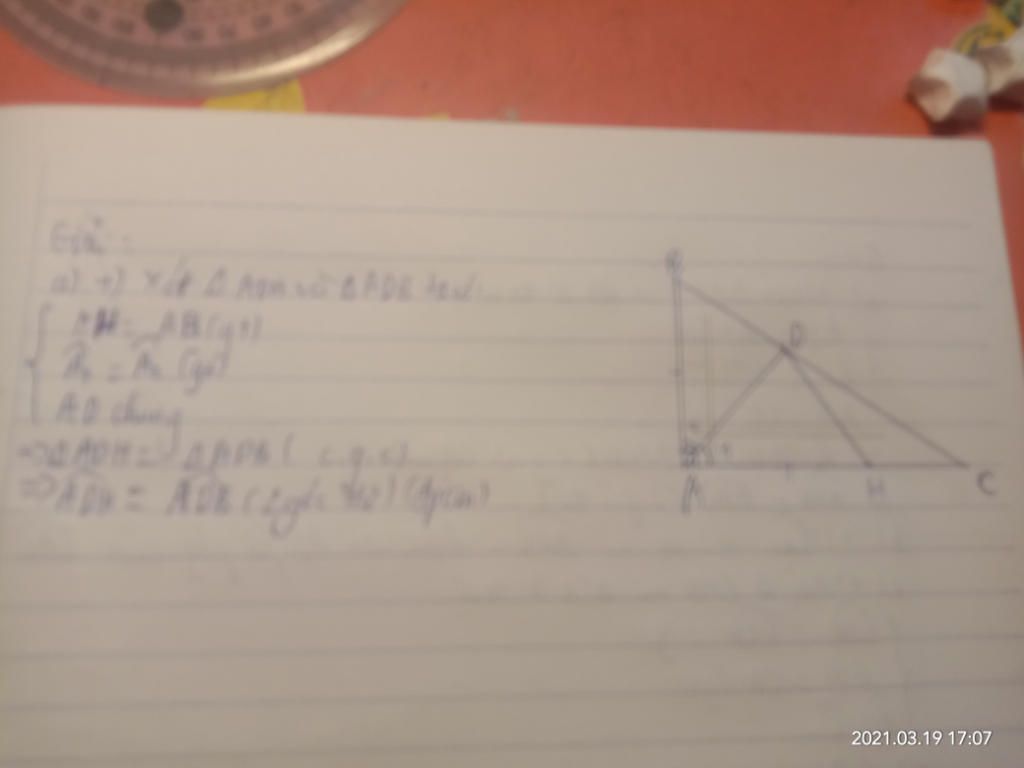 Giải:
a) +) Xét Δ ADH và Δ ADB có:
AH = AB (gt)
Â₁ = Â₂ (gt)
AD chung
=> Δ ADH = Δ ADB ( c.g.c)
=> ADH = ADB (2 góc) (đpcm)
B
D
A
H
C
2021.03.19 17:07